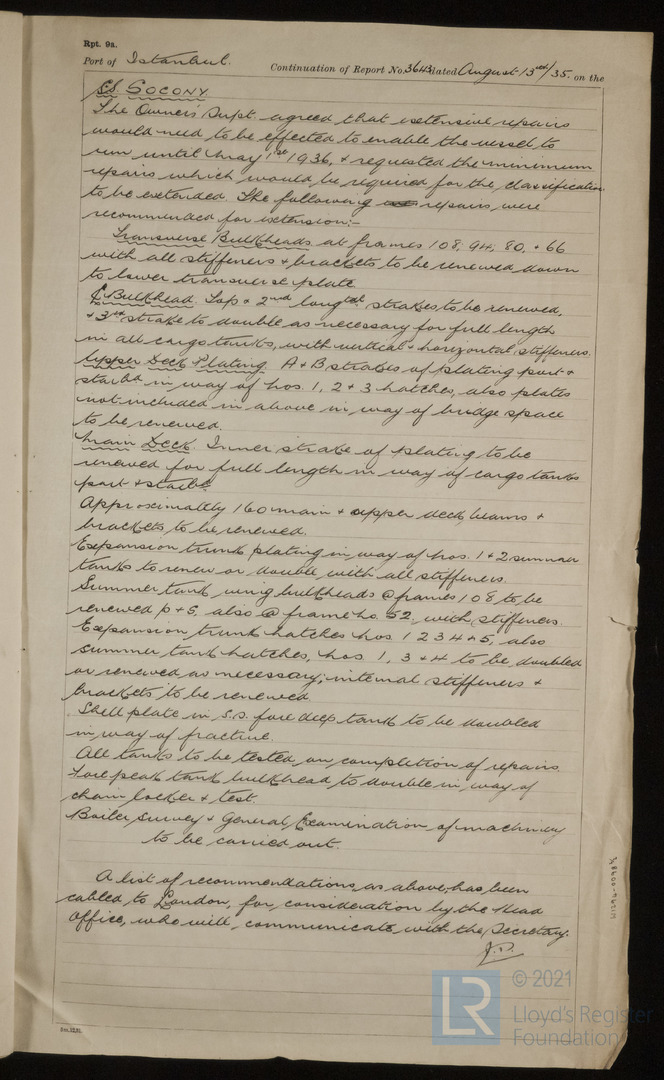 Rpt. 9a.
Port of Istanbul. Continuation of Report No. 3643 dated August 15th/35. on the
S.S. SOCONY.
The Owners Supt. agreed that extensive repairs
would need to be effected to enable the vessel to
run until May 1st 1936, & requested the minimum
repairs which would be required for the classification
to be extended. The following repairs were
recommended for extension:-
Transverse Bulkheads at frames 108, 94, 80, & 66
with all stiffeners & brackets to be renewed down
to lower transverse plate
₵ Bulkhead. Top & 2nd longtdl strakes to be renewed,
& 3rd strake to double as necessary for full length
in all cargo tanks, with vertical & horizontal stiffeners.
Upper Deck Plating. A & B strakes of plating port &
starbd in way of Nos. 1, 2 & 3 hatches, also plates
not included in above in way of bridge space
to be renewed.
Main Deck. Inner strake of plating to be
renewed for full length in way of cargo tanks
port & starbd
Approximately 160 main & upper deck beams &
brackets to be renewed.
Expansion trunk plating in way of Nos. 1 & 2 summer
tanks to renew or double with all stiffeners.
Summer tank wing bulkheads @ frames 108 to be
renewed P & S, also @ frame No. 52, with stiffeners.
Expansion trunk hatches Nos 1 2 3 4 & 5, also
summer tank hatches, Nos. 1, 3 & 4 to be doubled
or renewed as necessary; internal stiffeners &
brackets to be renewed
Shell plate in S.S. fore deep tank to be doubled
in way of fracture.
All tanks to be tested on completion of repairs.
Fore peak tank bulkhead to double in way of
chain locker & test.
Boiler Survey & General Examination of machinery
to be carried out.
A list of recommendations as above, has been
cabled to London, for consideration by the Head
Office, who will communicate with the Secretary.
© 2021
LR
Lloyd's Register
Foundation